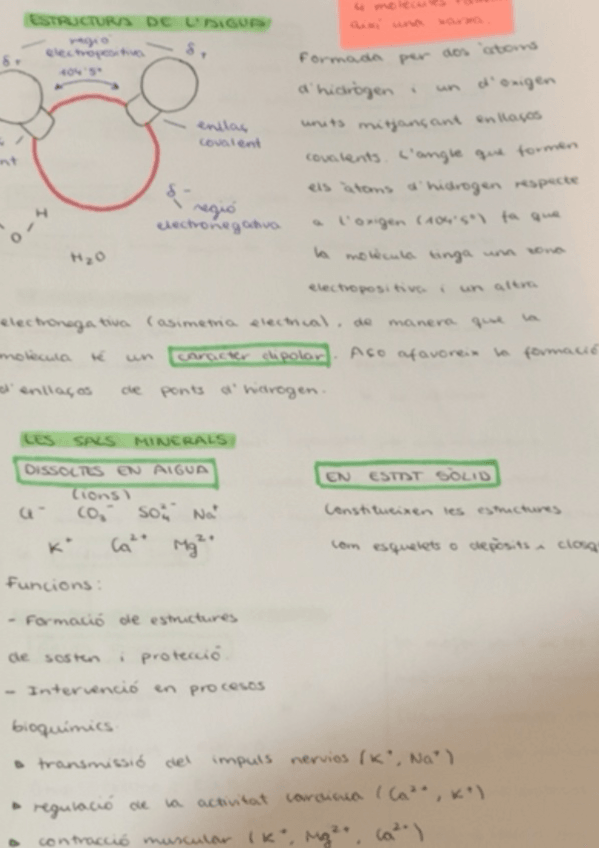 4 molècules
així una xarxa.
ESTRUCTURA DE L'AIGUA
regió
electropositiva
δ+
δ+
104'5°
enllaç
covalent
nt
δ-
regió
electronegativa
H
O
H₂O
Formada per dos àtoms
d'hidrògen i un d'oxigen
units mitjançant enllaços
covalents. L'angle que formen
els àtoms d'hidrogen respecte
a l'oxigen (104'5°) fa que
la molècula tinga una zona
electropositiva i un altra
electronegativa (asimetria elèctrica), de manera que la
molècula té un caràcter dipolar. Açò afavoreix la formació
d'enllaços de ponts d'hidrogen.
LES SALS MINERALS
DISSOLTES EN AIGUA
(ions)
Cl⁻ CO₃⁻ SO₄²⁻ Na⁺
K⁺ Ca²⁺ Mg²⁺
EN ESTAT SÒLID
Constitueixen les estructures
com esquelets o depòsits, closq
Funcions:
- Formació de estructures
de sosten i protecció.
- Intervenció en procesos
bioquímics.
▸ transmissió del impuls nerviós (K⁺, Na⁺)
▸ regulació de la activitat cardiaca (Ca²⁺, K⁺)
▸ contracció muscular (K⁺, Mg²⁺, Ca²⁺)